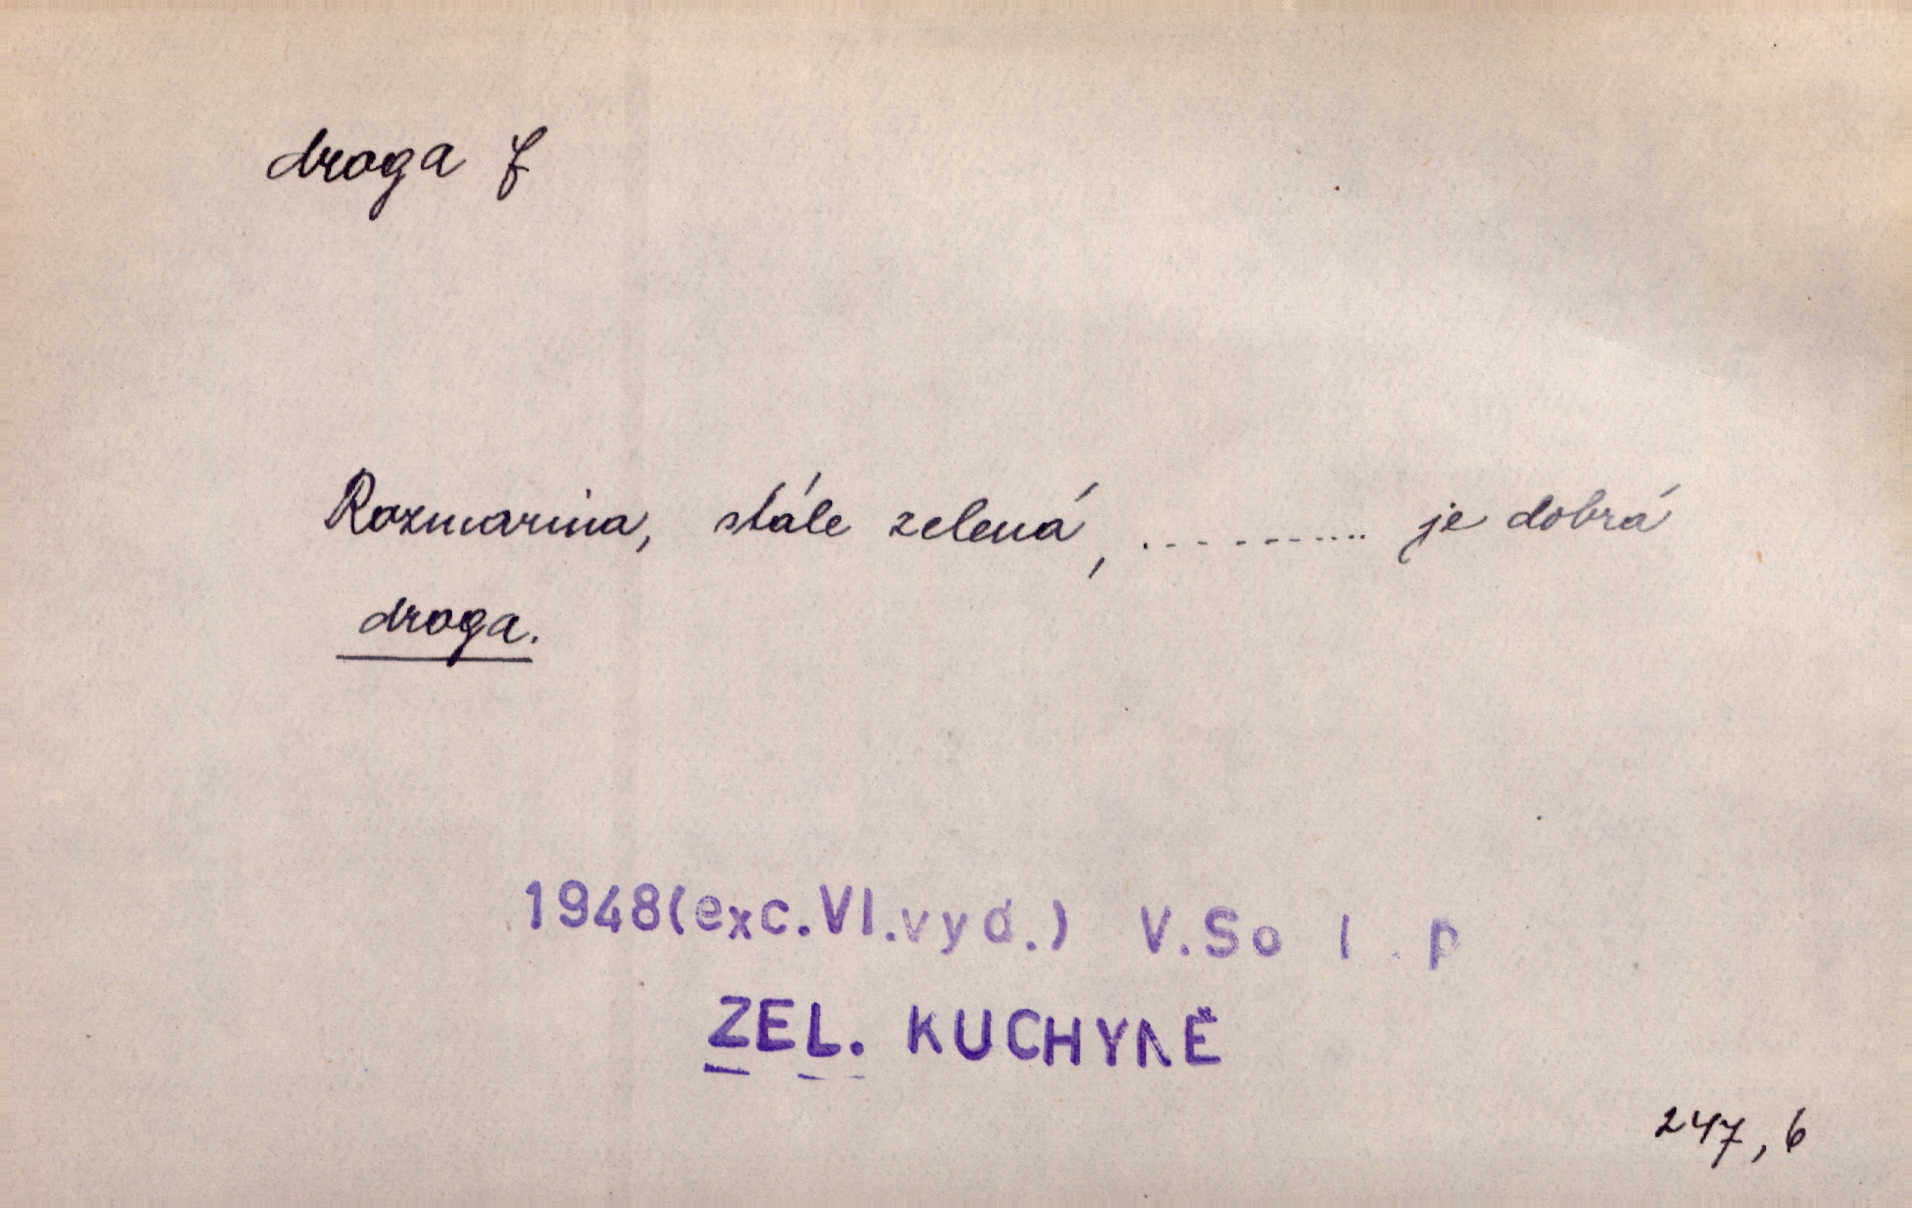 droga f
Rozmarina, stále zelená, .......... je dobrá
droga.
1948(exc.VI.vyd.) V.So
ZEL. KUCHYNĚ
247, 6